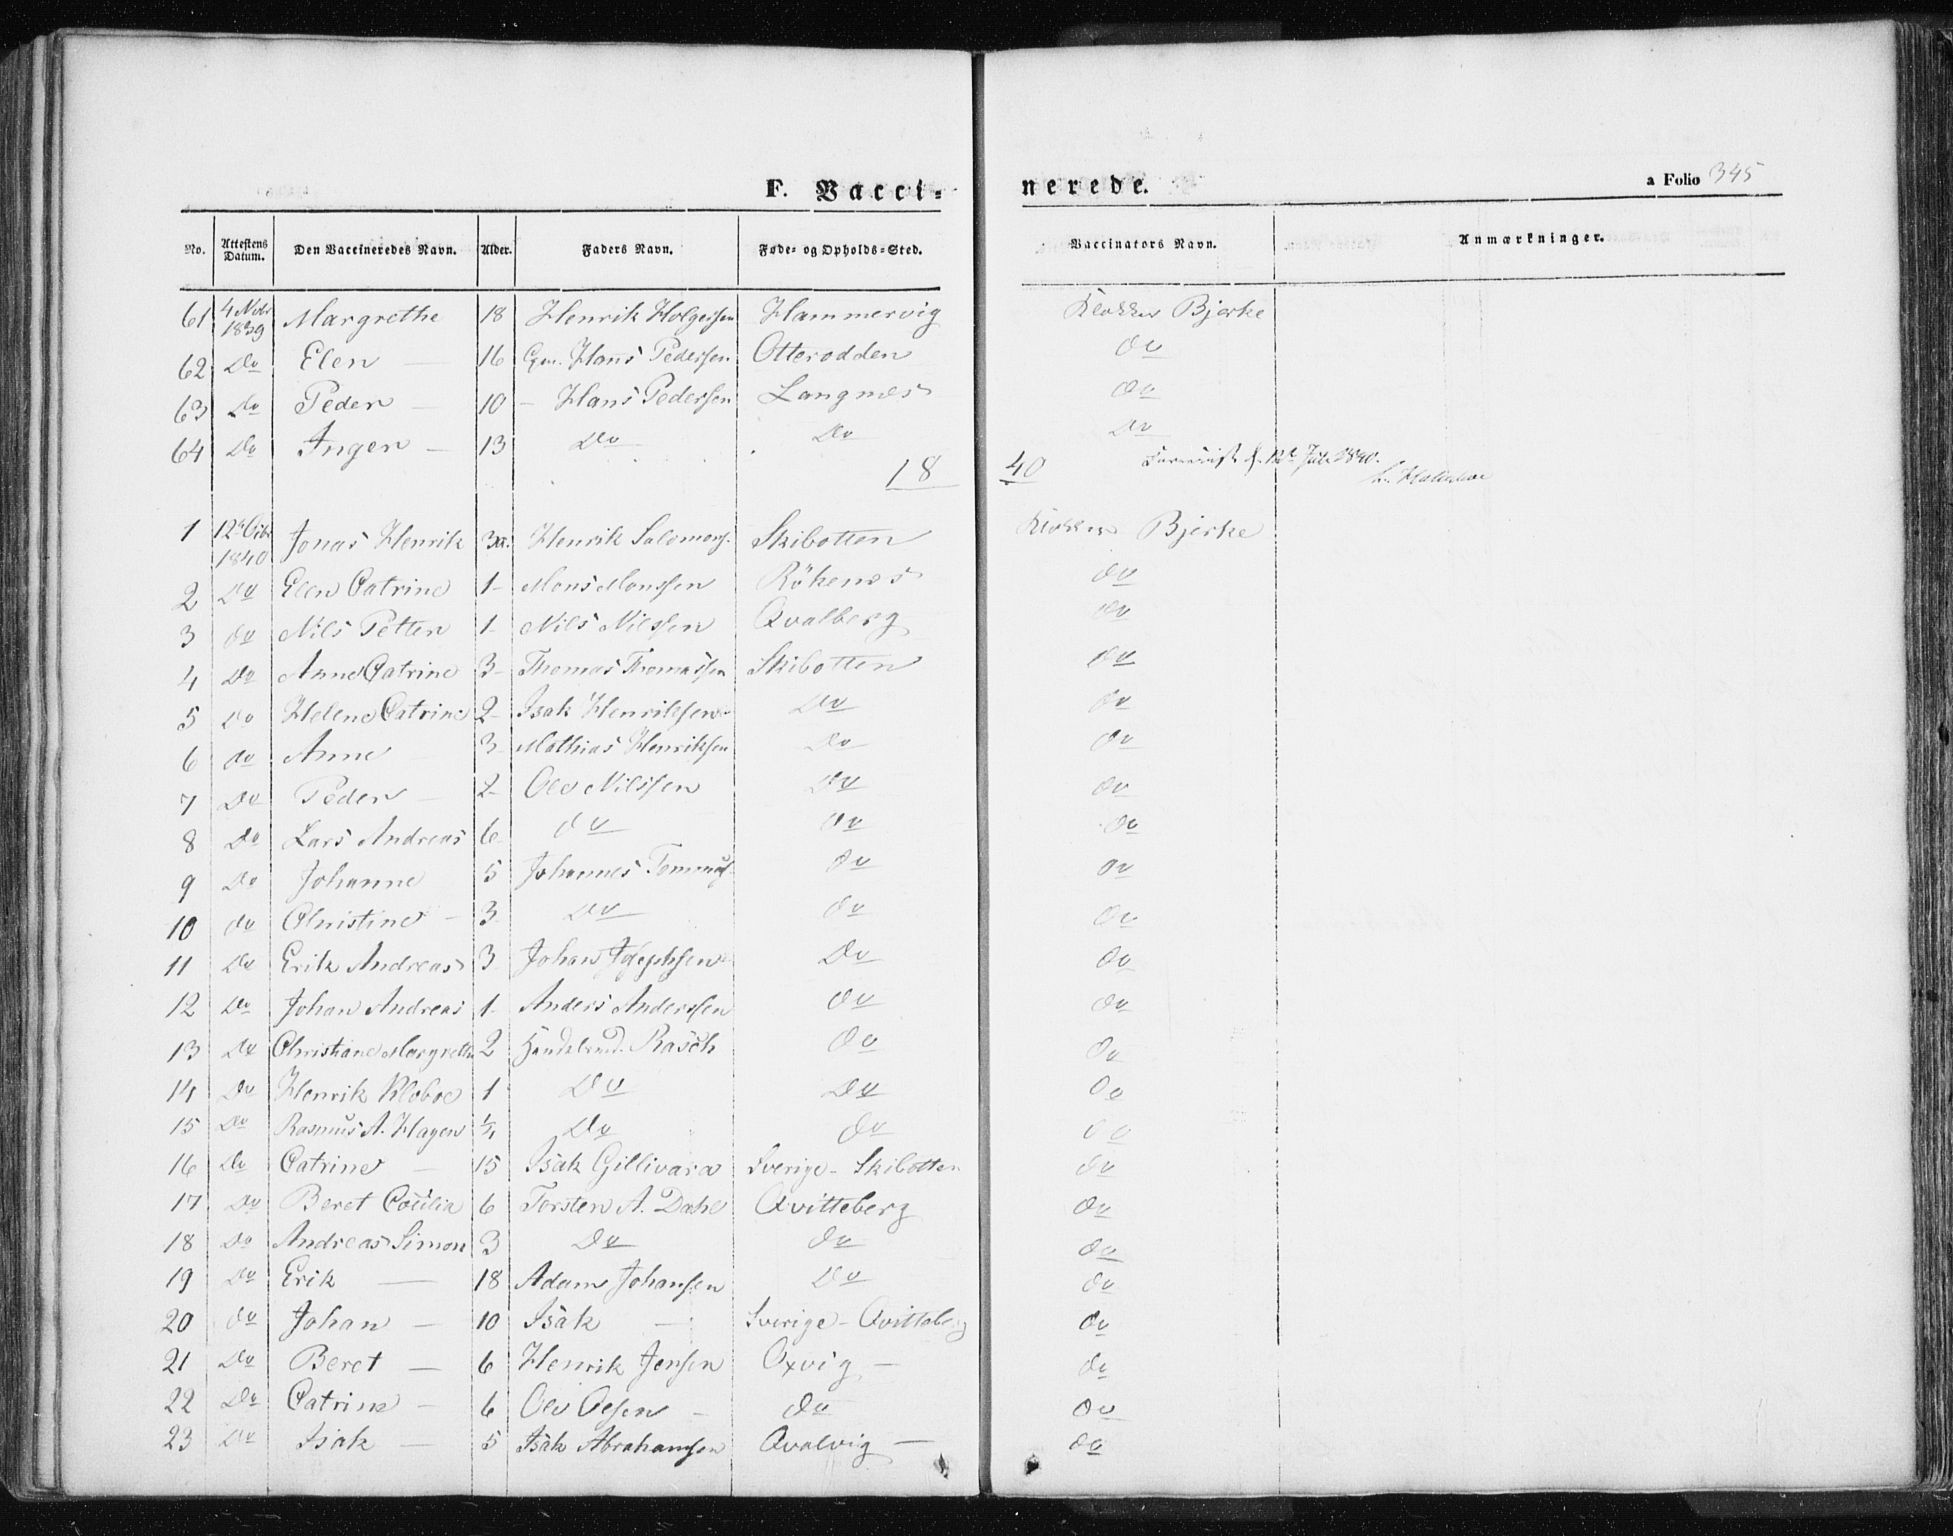 F. Vacci-nerede. a Folio 345
No. Attestens Datum. Den Vaccineredes Navn. Alder. Faders Navn. Føde- og Opholds-Sted. Vaccinators Navn. Anmærkninger.
61 4 Novbr 1839 Margrethe 18 Henrik Holgersen Hammervig Klokker Bjerke
62 Do Elen — 16 Hans Pedersen Otterodden do
63 Do Peder — 10 – Hans Pedersen Langnes do
64 Do Inger — 13 Do Do Do
1840 12te Juli 1840.
1 12te 1840 Jonas Henrik 3 Henrik Salomons. Skibotten Klokker Bjerke
2 Do Elen Catrine 1 – Mons Monssen Rökenes do
3 do Nils Petter 1 – Nils Nilssen Qvalberg do
4 Do Anne Catrine 3 – Thomas Thomassen Skibotten do
5 Do Helene Catrine 2 – Isak Henriksen Do do
6 do Anne — 3 – Mathias Henriksen Do do
7 Do Peder — 2 – Ole Nilssen Do do
8 Do Lars Andreas 6 do do do
9 Do Johanne 5 Johannes Tommas. do do
10 do Christine — 3 Do do do
11 Do Erik Andreas 3 Johan Josephsen Do do
12 Do Johan Andreas 1 – Anders Anderssen do do
13 Do Christiane Margrethe 2 Handelsmd. Rasch do do
14 Do Henrik Kloboe 1 Do Do do
15 Do Rasmus A. Hagen 1/4 Do do do
16 Do Catrine — 15 Isak Gillivara Sverige – Skibotten do
17 Do Beret Cecilia 6 Torsten A. Dahl Qvitteberg do
18 Do Andreas Simon 3 Do do do
19 Do Erik — 18 Adam Johansen Do do
20 do Johan — 10 Isak — Sverige – Qvitteberg do
21 Do Beret — 6 Henrik Jensen Oxvig — do
22 Do Catrine — 6 Ole Olsen – do do
23 Do Isak — 5 Isak Abrahamsen Qvalvig — do